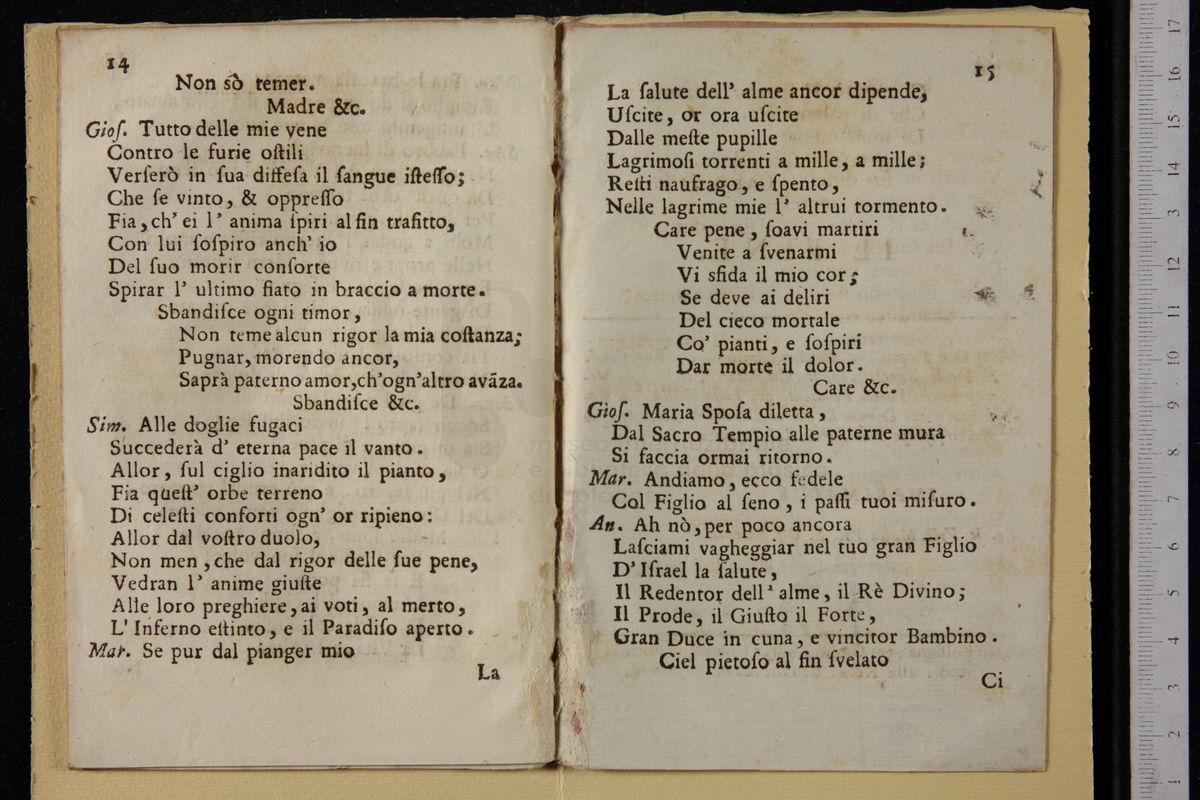 14
Non sò temer.
Madre &c.
Gioſ. Tutto delle mie vene
Contro le furie oſtili
Verſerò in ſua diffeſa il ſangue iſteſſo;
Che ſe vinto, & oppreſſo
Fia, ch' ei l' anima ſpiri al fin trafitto,
Con lui ſoſpiro anch' io
Del ſuo morir conſorte
Spirar l' ultimo fiato in braccio a morte.
Sbandiſce ogni timor,
Non teme alcun rigor la mia coſtanza;
Pugnar, morendo ancor,
Saprà paterno amor, ch'ogn'altro avāza.
Sbandiſce &c.
Sim. Alle doglie fugaci
Succederà d' eterna pace il vanto.
Allor, ſul ciglio inaridito il pianto,
Fia queſt' orbe terreno
Di celeſti conforti ogn' or ripieno:
Allor dal voſtro duolo,
Non men, che dal rigor delle ſue pene,
Vedran l' anime giuſte
Alle loro preghiere, ai voti, al merto,
L' Inferno eſtinto, e il Paradiſo aperto.
Mar. Se pur dal pianger mio
La
15
La ſalute dell' alme ancor dipende,
Uſcite, or ora uſcite
Dalle meſte pupille
Lagrimoſi torrenti a mille, a mille;
Reſti naufrago, e ſpento,
Nelle lagrime mie l' altrui tormento.
Care pene, ſoavi martiri
Venite a ſvenarmi
Vi sfida il mio cor;
Se deve ai deliri
Del cieco mortale
Co' pianti, e ſoſpiri
Dar morte il dolor.
Care &c.
Gioſ. Maria Spoſa diletta,
Dal Sacro Tempio alle paterne mura
Si faccia ormai ritorno.
Mar. Andiamo, ecco fedele
Col Figlio al ſeno, i paſſi tuoi miſuro.
An. Ah nò, per poco ancora
Laſciami vagheggiar nel tuo gran Figlio
D' Iſrael la ſalute,
Il Redentor dell' alme, il Rè Divino;
Il Prode, il Giuſto il Forte,
Gran Duce in cuna, e vincitor Bambino.
Ciel pietoſo al fin ſvelato
Ci
17
16
15
14
13
12
11
10
9
8
7
6
5
4
3
2
1